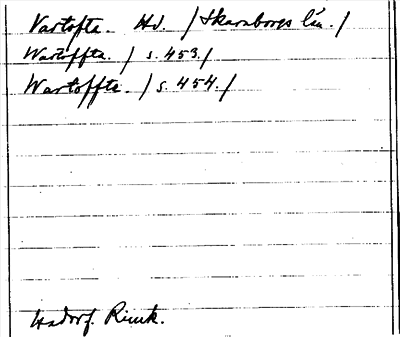 Vartofta. Hd. /Skaraborgs län./
Wartoffta. /s. 453./
Wartoffta. /s. 454./
Hadorf. Rimk.